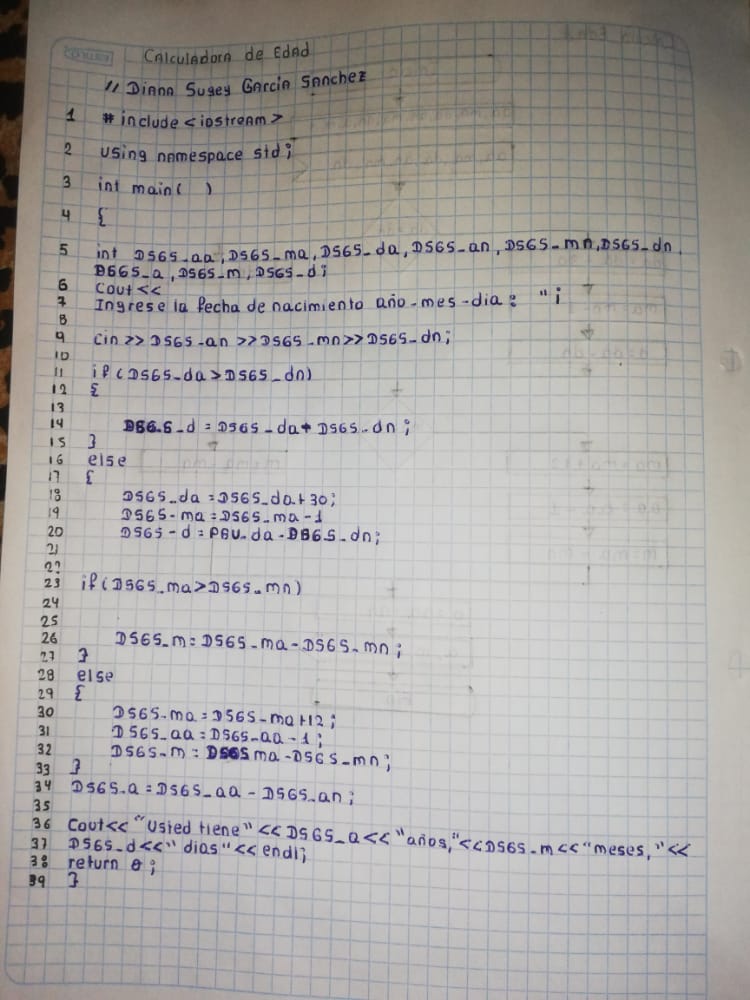 Calculadora de Edad
// Diana Sugey Garcia Sanchez
1 # include <iostream>
2 using namespace std;
3 int main( )
4 {
5 int DSGS_aa, DSGS_ma, DSGS_da, DSGS_an, DSGS_mn, DSGS_dn,
DSGS_a, DSGS_m, DSGS_d;
6 Cout <<
7 Ingrese la fecha de nacimiento año-mes-dia: ";
8
9 cin >> DSGS_an >> DSGS_mn >> DSGS_dn;
10
11 if (DSGS_da > DSGS_dn)
12 {
13
14 DSGS_d = DSGS_da + DSGS_dn;
15 }
16 else
17 {
18 DSGS_da = DSGS_da + 30;
19 DSGS-ma = DSGS_ma - 1
20 DSGS-d = PBU_da - DBGS_dn;
21
22
23 if (DSGS_ma > DSGS_mn)
24
25
26 DSGS_m = DSGS_ma - DSGS_mn;
27 }
28 else
29 {
30 DSGS_ma = DSGS_ma + 12;
31 DSGS_aa = DSGS_aa - 1;
32 DSGS_m = DSGS ma - DSGS_mn;
33 }
34 DSGS_a = DSGS_aa - DSGS_an;
35
36 Cout << "Usted tiene" << DSGS_a << "años," << DSGS_m << "meses, " <<
37 DSGS_d << " dias" << endl;
38 return 0;
39 }